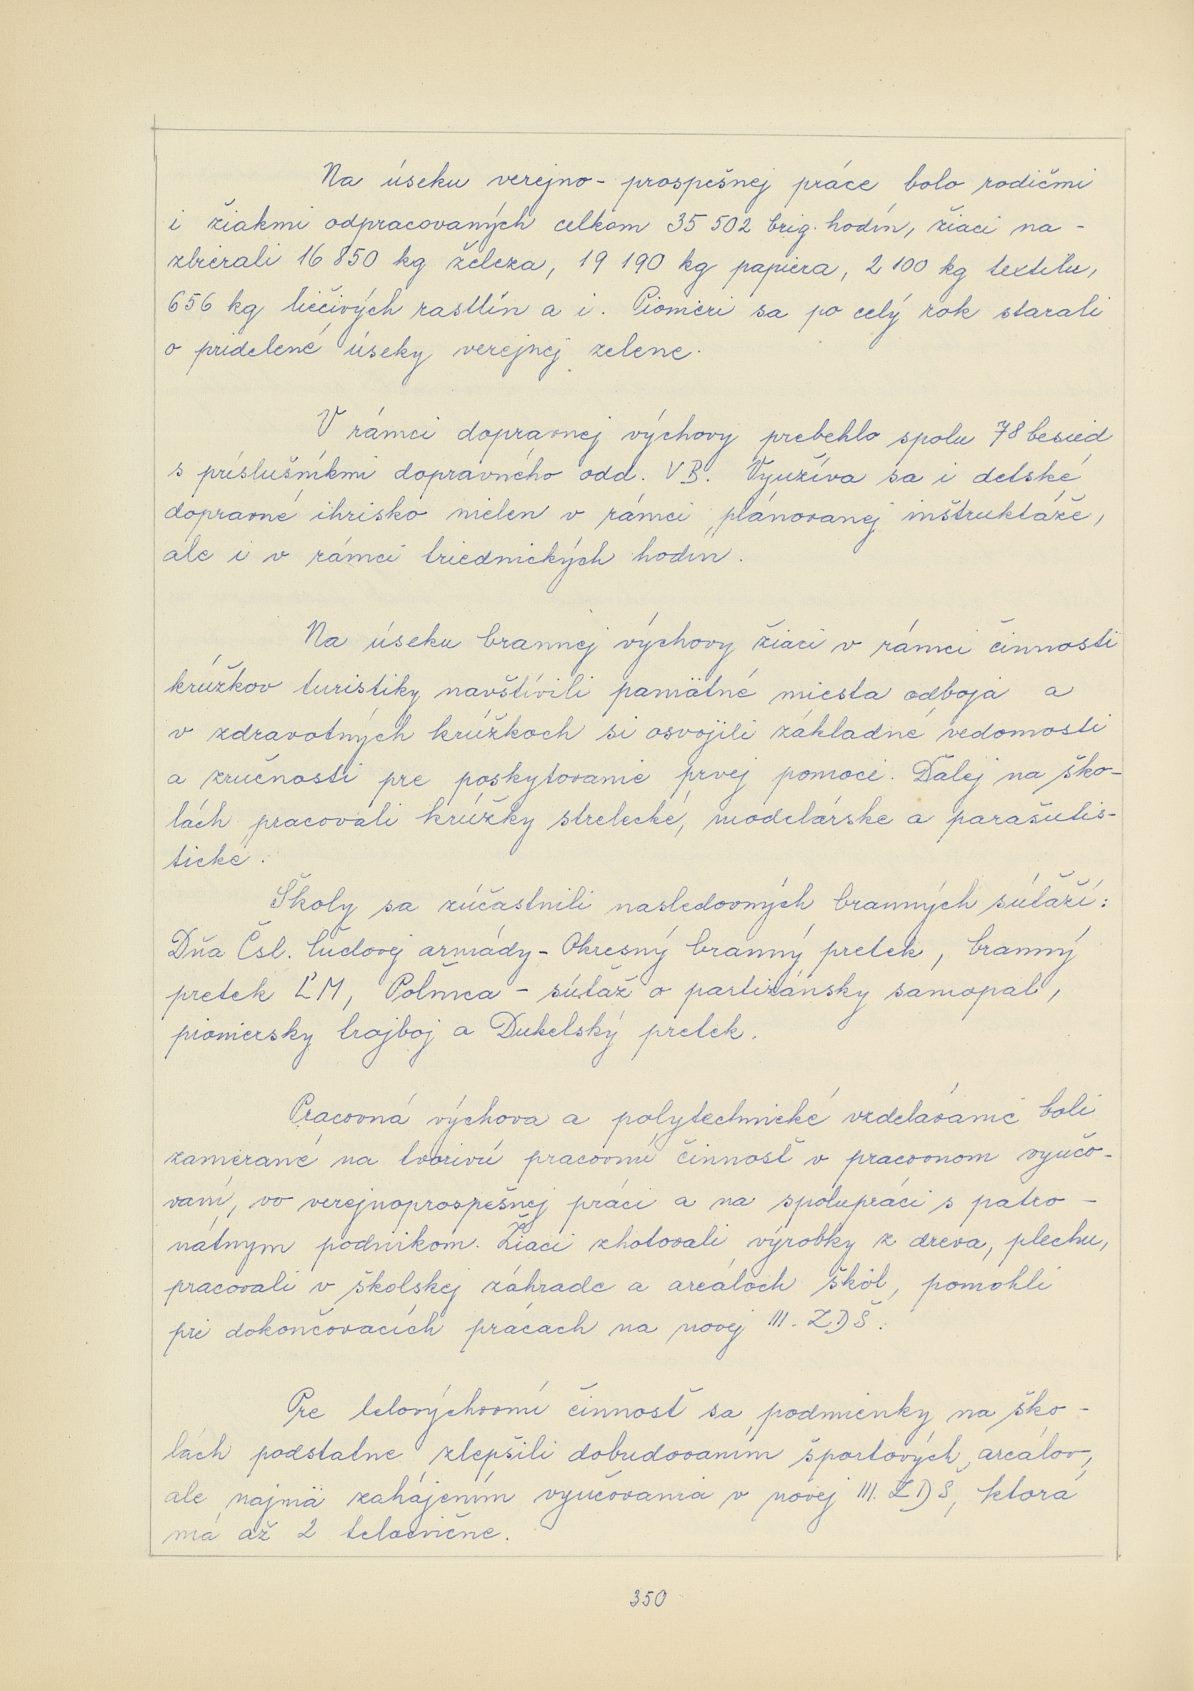 Na úseku verejno-prospešnej práce bolo rodičmi
i žiakmi odpracovaných celkom 35 502 brig. hodín, žiaci na-
zbierali 16 850 kg železa, 19 190 kg papiera, 2 100 kg textilu,
656 kg liečivých rastlín a i. Pionieri sa po celý rok starali
o pridelené úseky verejnej zelene.
V rámci dopravnej výchovy prebehlo spolu 78 besied
s príslušníkmi dopravného odd. VB. Využíva sa i detské
dopravné ihrisko nielen v rámci plánovanej inštruktáže,
ale i v rámci triednických hodín.
Na úseku brannej výchovy žiaci v rámci činnosti
krúžkov turistiky navštívili pamätné miesta odboja a
v zdravotných krúžkoch si osvojili základné vedomosti
a zručnosti pre poskytovanie prvej pomoci. Ďalej na ško-
lách pracovali krúžky strelecké, modelárske a parašutis-
tické.
Školy sa zúčastnili nasledovných branných súťaží:
Dňa Čsl. ľudovej armády - Okresný branný pretek, branný
pretek ĽM, Poľnica - súťaž o partizánsky samopal,
pioniersky trojboj a Dukelský pretek.
Pracovná výchova a polytechnické vzdelávanie boli
zamerané na tvorivú pracovnú činnosť v pracovnom vyučo-
vaní, vo verejnoprospešnej práci a na spolupráci s patro-
nátnym podnikom. Žiaci zhotovali výrobky z dreva, plechu,
pracovali v školskej záhrade a areáloch škôl, pomohli
pri dokončovacích prácach na novej III. ZDŠ.
Pre telovýchovnú činnosť sa podmienky na ško-
lách podstatne zlepšili dobudovaním športových areálov,
ale najmä zahájením vyučovania v novej III. ZDŠ, ktorá
má až 2 telocvične.
350